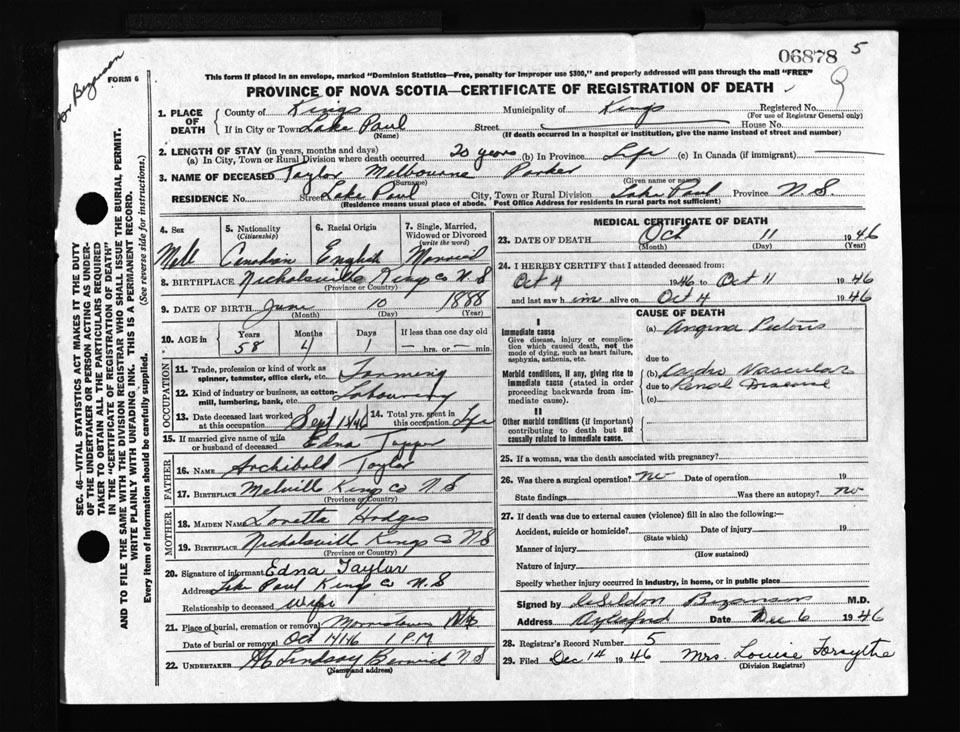 06878 5
FORM 6
This form if placed in an envelope, marked "Dominion Statistics—Free, penalty for improper use $300," and properly addressed will pass through the mail "FREE"
PROVINCE OF NOVA SCOTIA—CERTIFICATE OF REGISTRATION OF DEATH
9
SEC. 46—VITAL STATISTICS ACT MAKES IT THE DUTY
OF THE UNDERTAKER OR PERSON ACTING AS UNDER-
TAKER TO OBTAIN ALL THE PARTICULARS REQUIRED
IN THE "CERTIFICATE OF REGISTRATION OF DEATH"
AND TO FILE THE SAME WITH THE DIVISION REGISTRAR WHO SHALL ISSUE THE BURIAL PERMIT.
WRITE PLAINLY WITH UNFADING INK. THIS IS A PERMANENT RECORD.
Every item of information should be carefully supplied. (See reverse side for instructions.)
1. PLACE OF DEATH County of Kings Municipality of Kings Registered No.
(For use of Registrar General only)
If in City or Town Lake Paul Street House No.
(Name) (If death occurred in a hospital or institution, give the name instead of street and number)
2. LENGTH OF STAY (in years, months and days)
(a) In City, Town or Rural Division where death occurred 20 years (b) In Province Life (c) In Canada (if immigrant)
3. NAME OF DECEASED Taylor Melbourne Parker
(Surname) (Given name or names)
RESIDENCE No. Street Lake Paul City, Town or Rural Division Lake Paul Province N.S
(Residence means usual place of abode. Post Office Address for residents in rural parts not sufficient)
4. Sex 5. Nationality (Citizenship) 6. Racial Origin 7. Single, Married, Widowed or Divorced (write the word)
Male Canadian English Married
8. BIRTHPLACE Nicholsville Kings Co N.S
(Province or Country)
9. DATE OF BIRTH June 10 1888
(Month) (Day) (Year)
10. AGE in Years Months Days If less than one day old
58 4 1 — hrs. or — min.
OCCUPATION
11. Trade, profession or kind of work as spinner, teamster, office clerk, etc. Farming
12. Kind of industry or business, as cotton-mill, lumbering, bank, etc. Labouring
13. Date deceased last worked at this occupation Sept 1946 14. Total yrs. spent in this occupation Life
15. If married give name of wife or husband of deceased Edna Tupper
FATHER
16. NAME Archibald Taylor
17. BIRTHPLACE Melville Kings Co N.S
(Province or Country)
MOTHER
18. MAIDEN NAME Loretta Hodges
19. BIRTHPLACE Nicholsville Kings Co N.S
(Province or Country)
20. Signature of informant Edna Taylor
Address Lake Paul Kings Co N.S
Relationship to deceased Wife
21. Place of burial, cremation or removal Morristown N.S.
Date of burial or removal Oct 14/46 1 P.M
22. UNDERTAKER Lindsay Berwick N S
(Name and address)
MEDICAL CERTIFICATE OF DEATH
23. DATE OF DEATH Oct 11 1946
(Month) (Day) (Year)
24. I HEREBY CERTIFY that I attended deceased from:
Oct 4 1946 to Oct 11 1946
and last saw him alive on Oct 4 1946
CAUSE OF DEATH
I
Immediate cause
Give disease, injury or complication which caused death, not the mode of dying, such as heart failure, asphyxia, asthenia, etc.
(a) Angina Pectoris
due to
Morbid conditions, if any, giving rise to immediate cause (stated in order proceeding backwards from immediate cause).
(b) Cardio Vascular
due to Renal Disease
(c)
II
Other morbid conditions (if important) contributing to death but not causally related to immediate cause.
25. If a woman, was the death associated with pregnancy?
26. Was there a surgical operation? No Date of operation 19
State findings Was there an autopsy? No
27. If death was due to external causes (violence) fill in also the following:—
Accident, suicide or homicide? Date of injury 19
(State which)
Manner of injury
(How sustained)
Nature of injury
Specify whether injury occurred in industry, in home, or in public place
Signed by Bezanson M.D.
Address Aylesford Date Dec 6 1946
28. Registrar's Record Number 5
29. Filed Dec 14 1946 Mrs. Louise Forsythe
(Division Registrar)